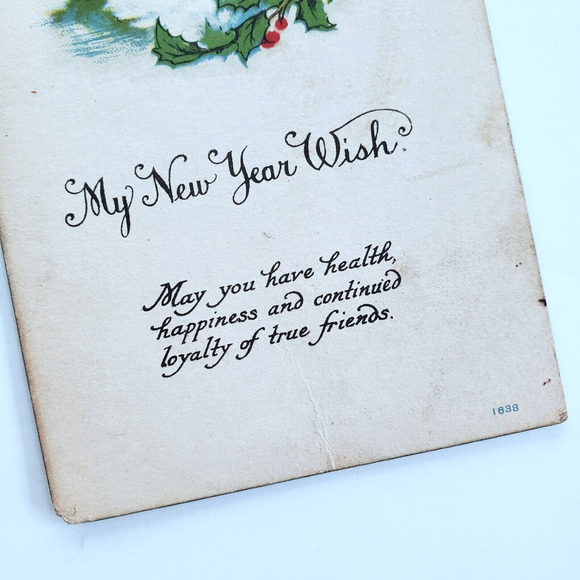 My New Year Wish.
May you have health,
happiness and continued
loyalty of true friends.
1638